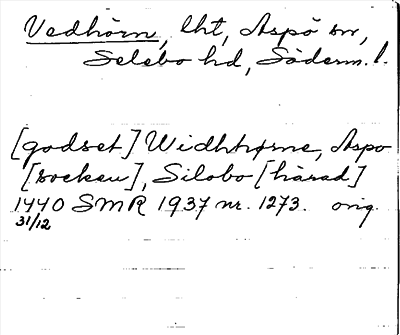 Vedhörn, lht, Aspö sn,
Selebo hd, Söderm. l.
[godset] Widhhørne, Aspo
[socken], Silobo [härad]
1440 SMR 1937 nr. 1273. orig.
31/12